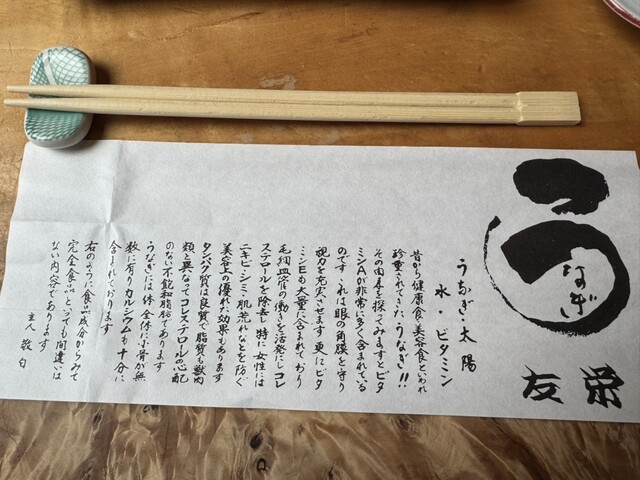 うなぎ
友栄
うなぎ・太陽
水・ビタミン
昔から健康食・美容食といわれ
珍重されてきた、うなぎ!!
その内容を探ってみますとビタ
ミンAが非常に多く含まれている
のです これは眼の角膜を守り
視力を充実させます 更にビタ
ミンEも大量に含まれており
毛細血管の働きを活発にしコレ
ステロールを除去し 特に女性には
ニキビ・シミ・肌荒れなどを防ぐ
美容上の優れた効果もあります
タンパク質は良質で脂質も獣肉
類と異なってコレステロールの心配
のない不飽和脂肪であります
うなぎには体全体に小骨が無
数に有りカルシウムも十分に
含まれております
右のように食品成分からみて
完全食品といっても間違いは
ない内容であります
主人 敬白